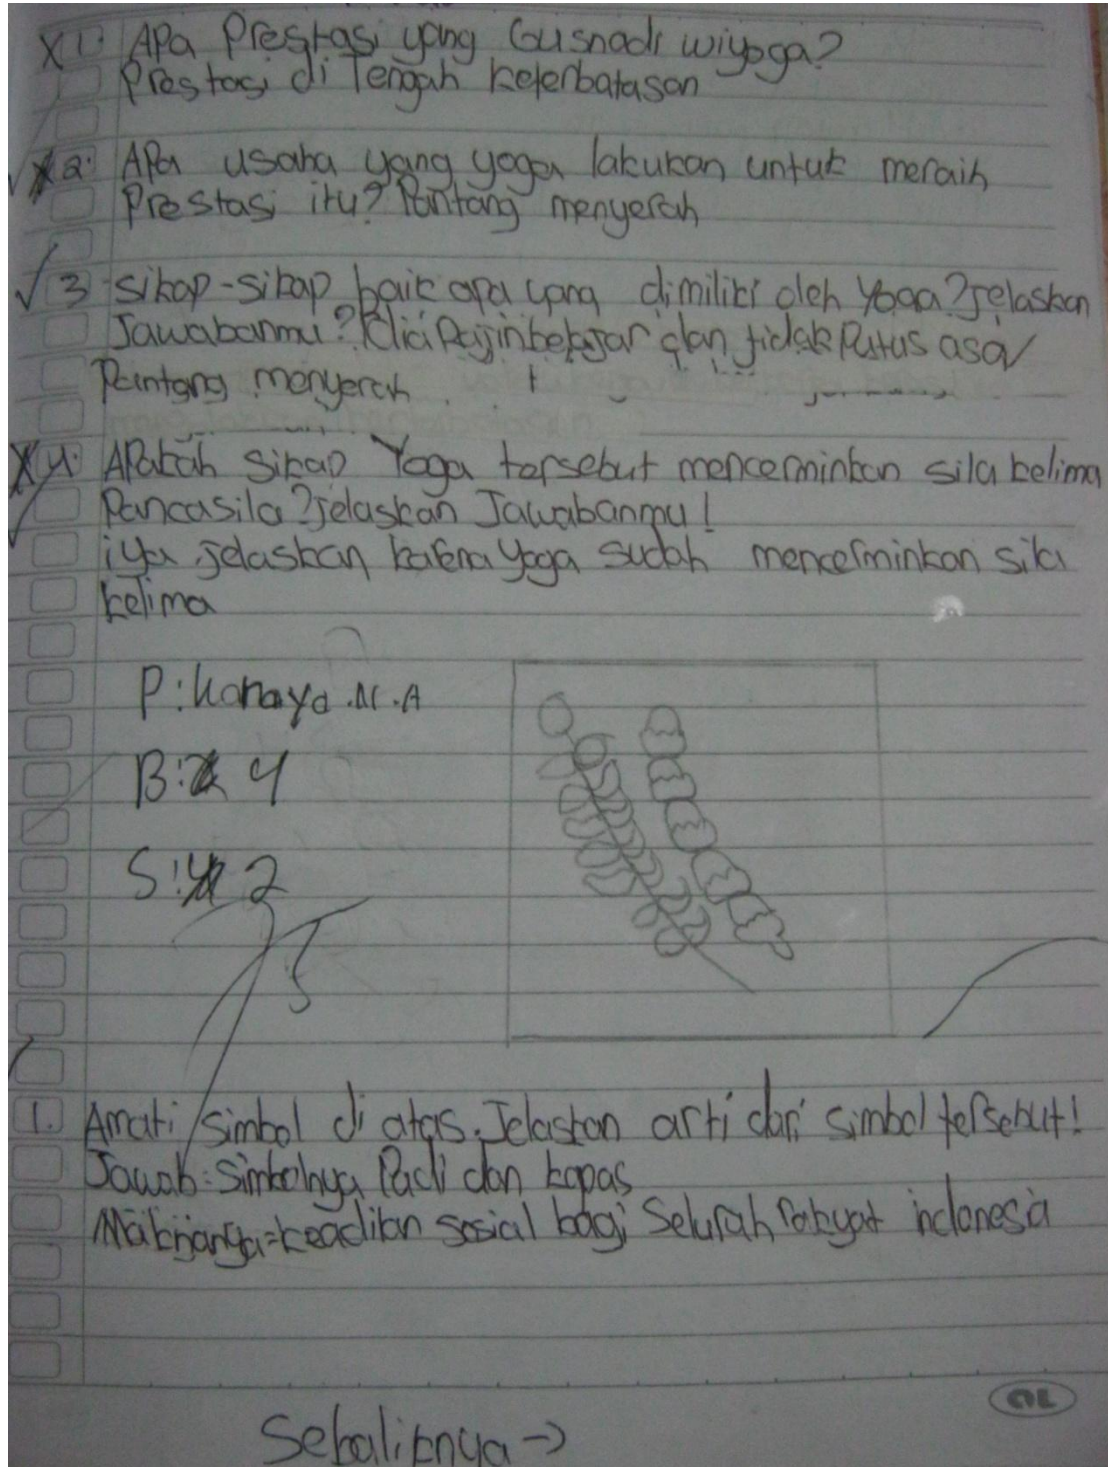 X 1. Apa Prestasi yang Gusnadi wiyoga?
Prestasi di Tengah keterbatasan
2. Apa usaha yang yoga lakukan untuk meraih
Prestasi itu? Pantang menyerah
√ 3 sikap-sikap baik apa yang dimiliki oleh Yoga? jelaskan
Jawabanmu? Rajin belajar dan tidak Putus asa
Pantang menyerah
X 4. Apakah sikap Yoga tersebut mencerminkan sila kelima
Pancasila? jelaskan Jawabanmu!
iya jelaskan karena yoga sudah mencerminkan sila
kelima
P: Kanaya .N.A
B: 4
S: 2
1. Amati simbol di atas. Jelaskan arti dari simbol tersebut!
Jawab: Simbolnya Padi dan kapas
Maknanya=keadilan sosial bagi Seluruh rakyat indonesia
OL
Sebaliknya →